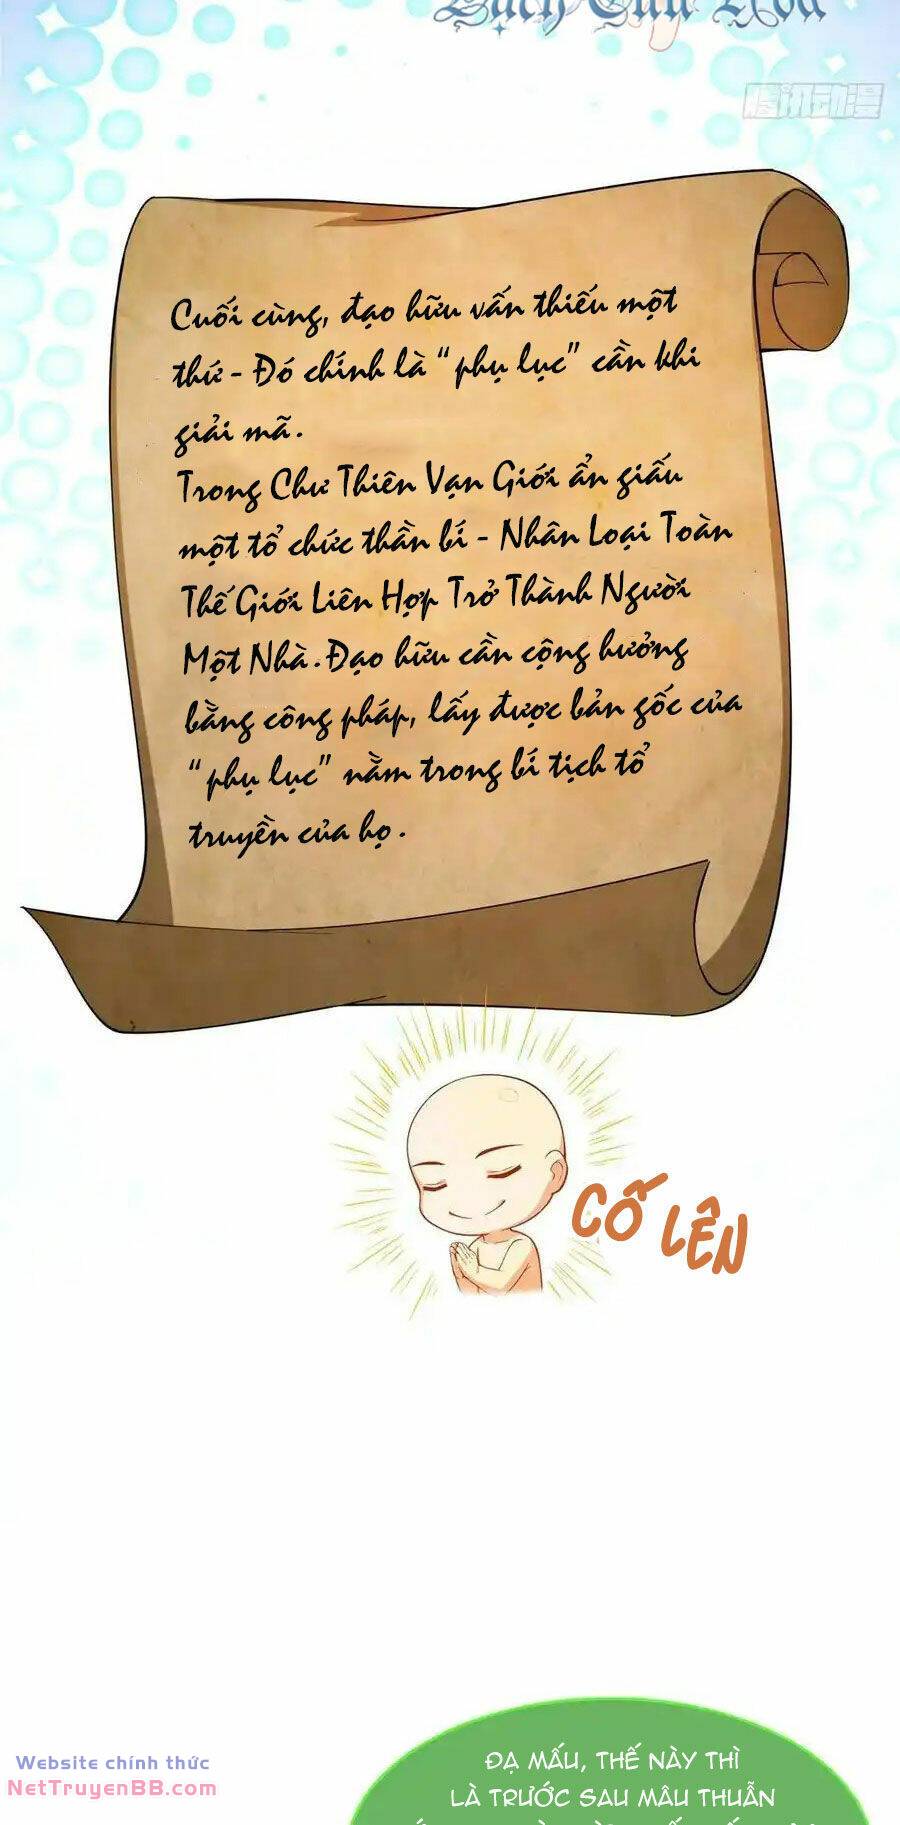 Bạch Cửu Hoa
腾讯动漫
Cuối cùng, đạo hữu vẫn thiếu một
thứ - Đó chính là “phụ lục” cần khi
giải mã.
Trong Chư Thiên Vạn Giới ẩn giấu
một tổ chức thần bí - Nhân Loại Toàn
Thế Giới Liên Hợp Trở Thành Người
Một Nhà. Đạo hữu cần cộng hưởng
bằng công pháp, lấy được bản gốc của
“phụ lục” nằm trong bí tịch tổ
truyền của họ.
CỐ LÊN
ĐẠ MẤU, THẾ NÀY THÌ
LÀ TRƯỚC SAU MÂU THUẪN
Website chính thức
NetTruyenBB.com